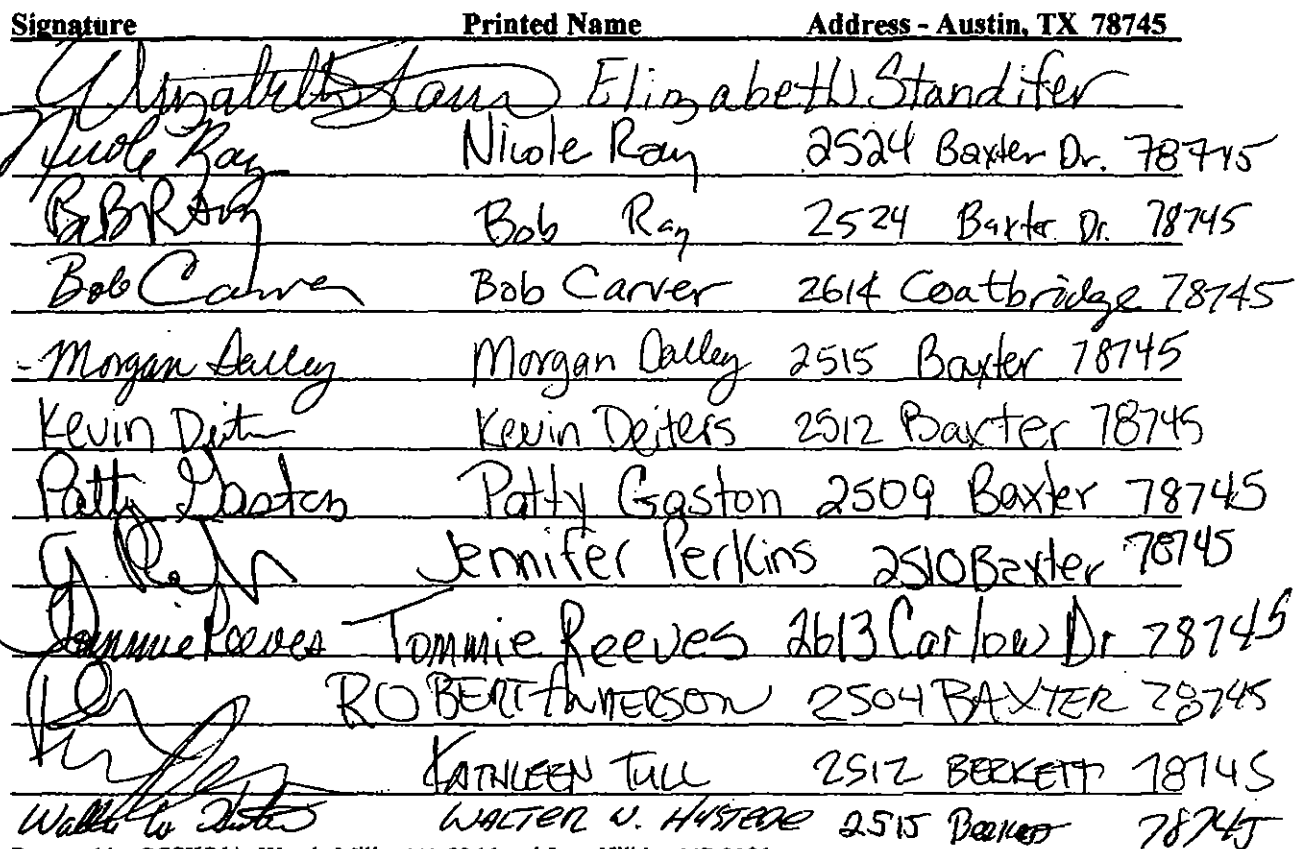 Signature Printed Name Address - Austin, TX 78745
Elizabeth Standifer
Nicole Ray Nicole Ray 2524 Baxter Dr. 78745
Bob Ray Bob Ray 2524 Baxter Dr. 78745
Bob Carver Bob Carver 2614 Coatbridge 78745
Morgan Dalley Morgan Dalley 2515 Baxter 78745
Kevin Deiters 2512 Baxter 78745
Patty Gaston Patty Gaston 2509 Baxter 78745
Jennifer Perkins 2510 Baxter 78745
Tommie Reeves Tommie Reeves 2613 Carlow Dr 78745
ROBERT ANDERSON 2504 BAXTER 78745
KATHLEEN TULL 2512 BERKETT 78745
WALTER W. HYSTEDE 2515 78745